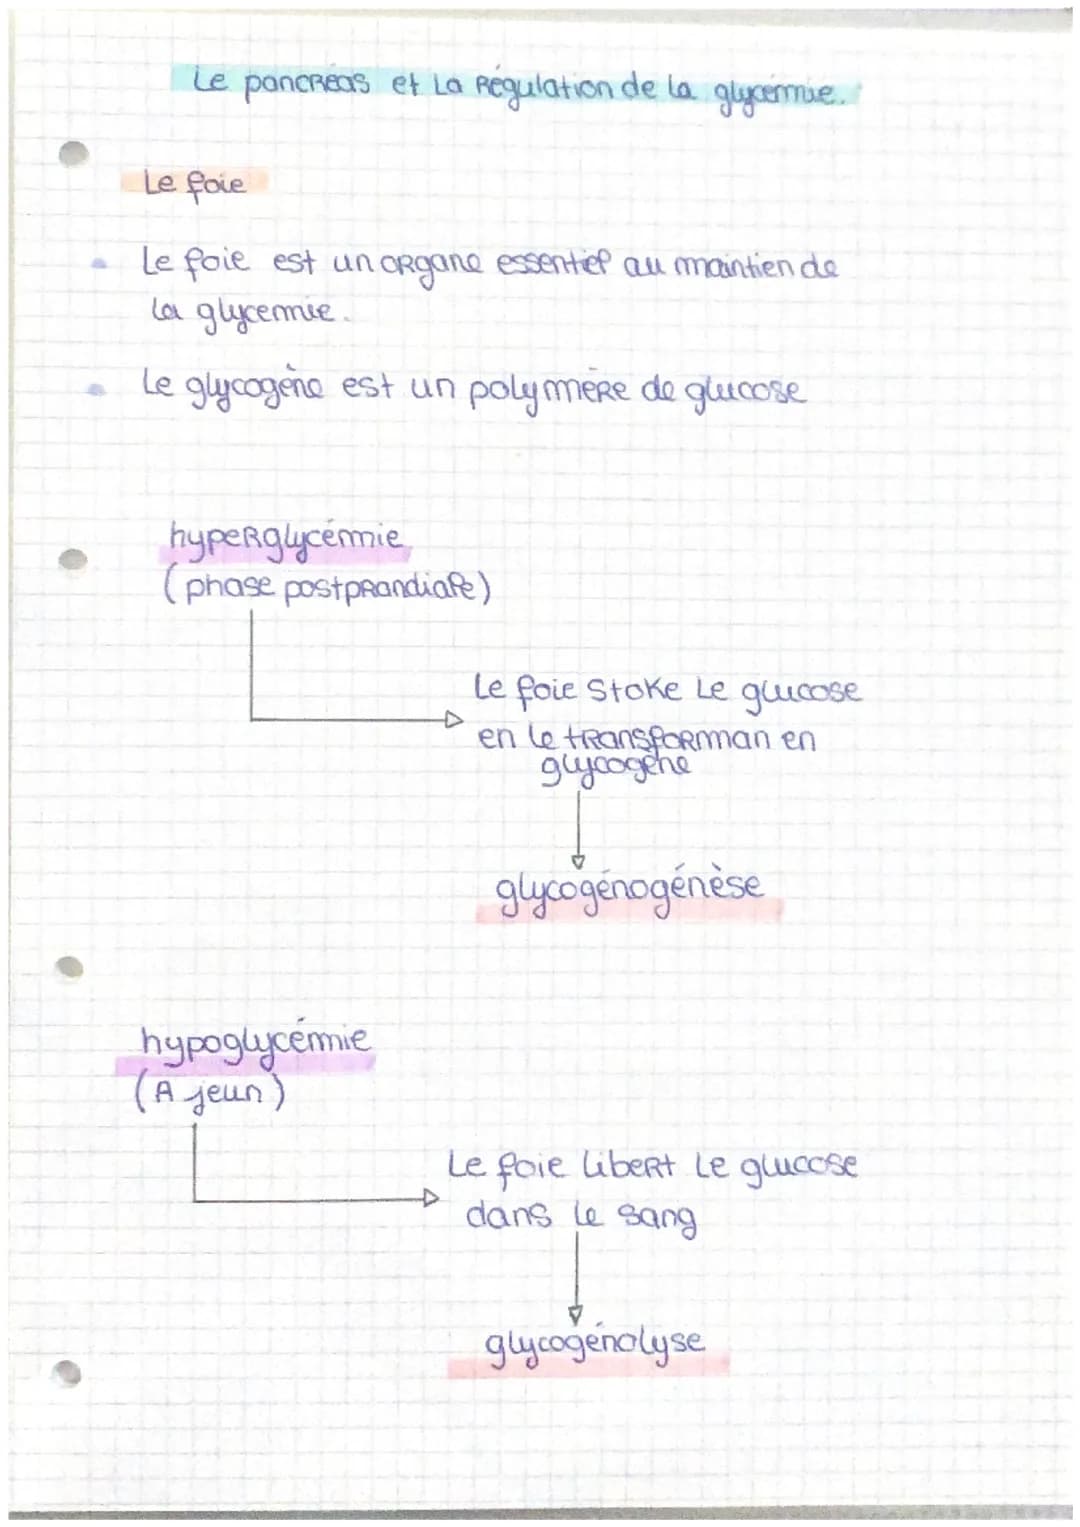 Le pancréas et La Régulation de la glycémie.
Le foie
Le foie est un organe essentiel au maintien de
la glycemie.
Le glycogène est un polymère de glucose
hyperglycémie
(phase postprandiale)
Le foie Stoke Le glucose
en le transforman en
glycogène
glycogénogénèse
hypoglycémie
(A jeun)
Le foie libert Le glucose
dans le sang
glycogénolyse